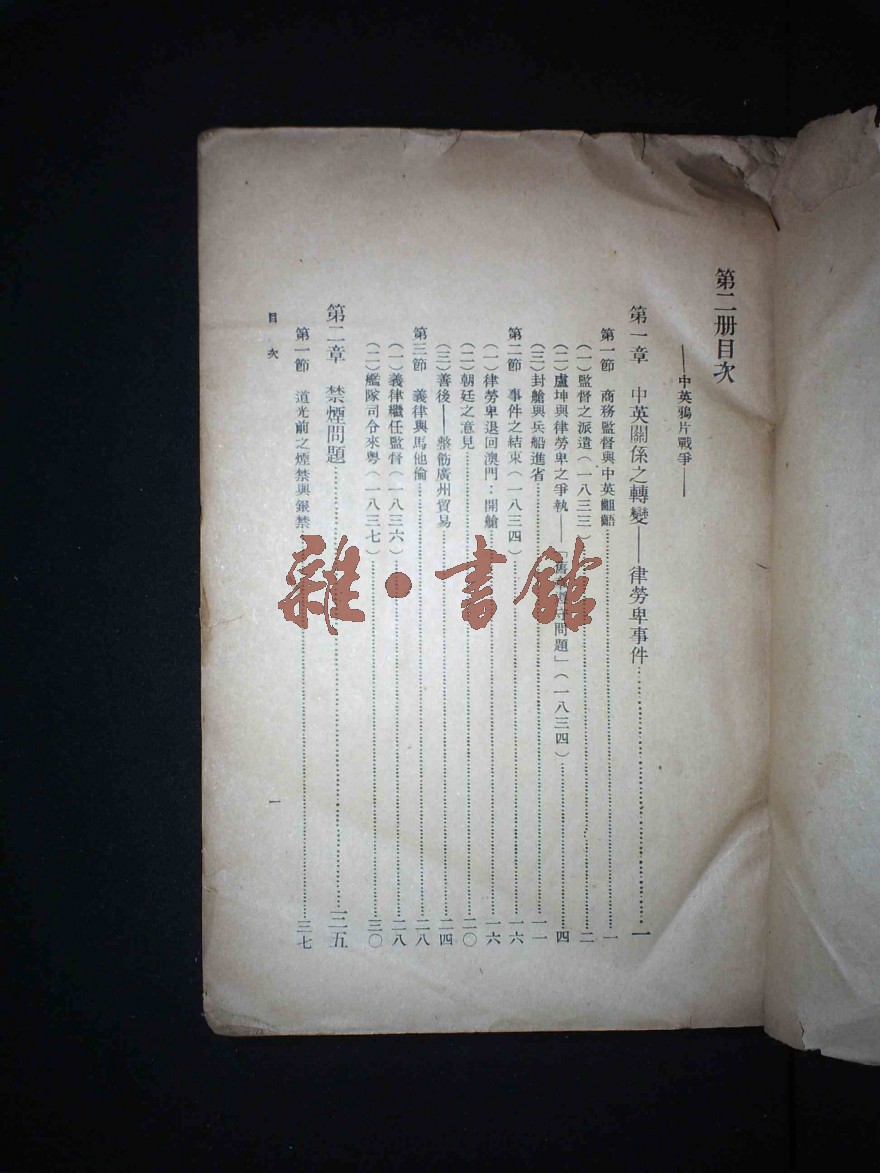 第二册目次
——中英鴉片戰爭——
第一章 中英關係之轉變——律勞卑事件……一
第一節 商務監督與中英齟齬……一
(一)監督之派遣(一八三三)……二
(二)盧坤與律勞卑之爭執——「 問題」(一八三四)……四
(三)封艙與兵船進省……一一
第二節 事件之結束(一八三四)……一六
(一)律勞卑退回澳門:開艙……一六
(二)朝廷之意見……二〇
(三)善後——整飭廣州貿易……二四
第三節 義律與馬他倫……二八
(一)義律繼任監督(一八三六)……二八
(二)艦隊司令來粵(一八三七)……三〇
第二章 禁煙問題……三五
第一節 道光前之煙禁與銀禁……三七
目次
一
雜·書館